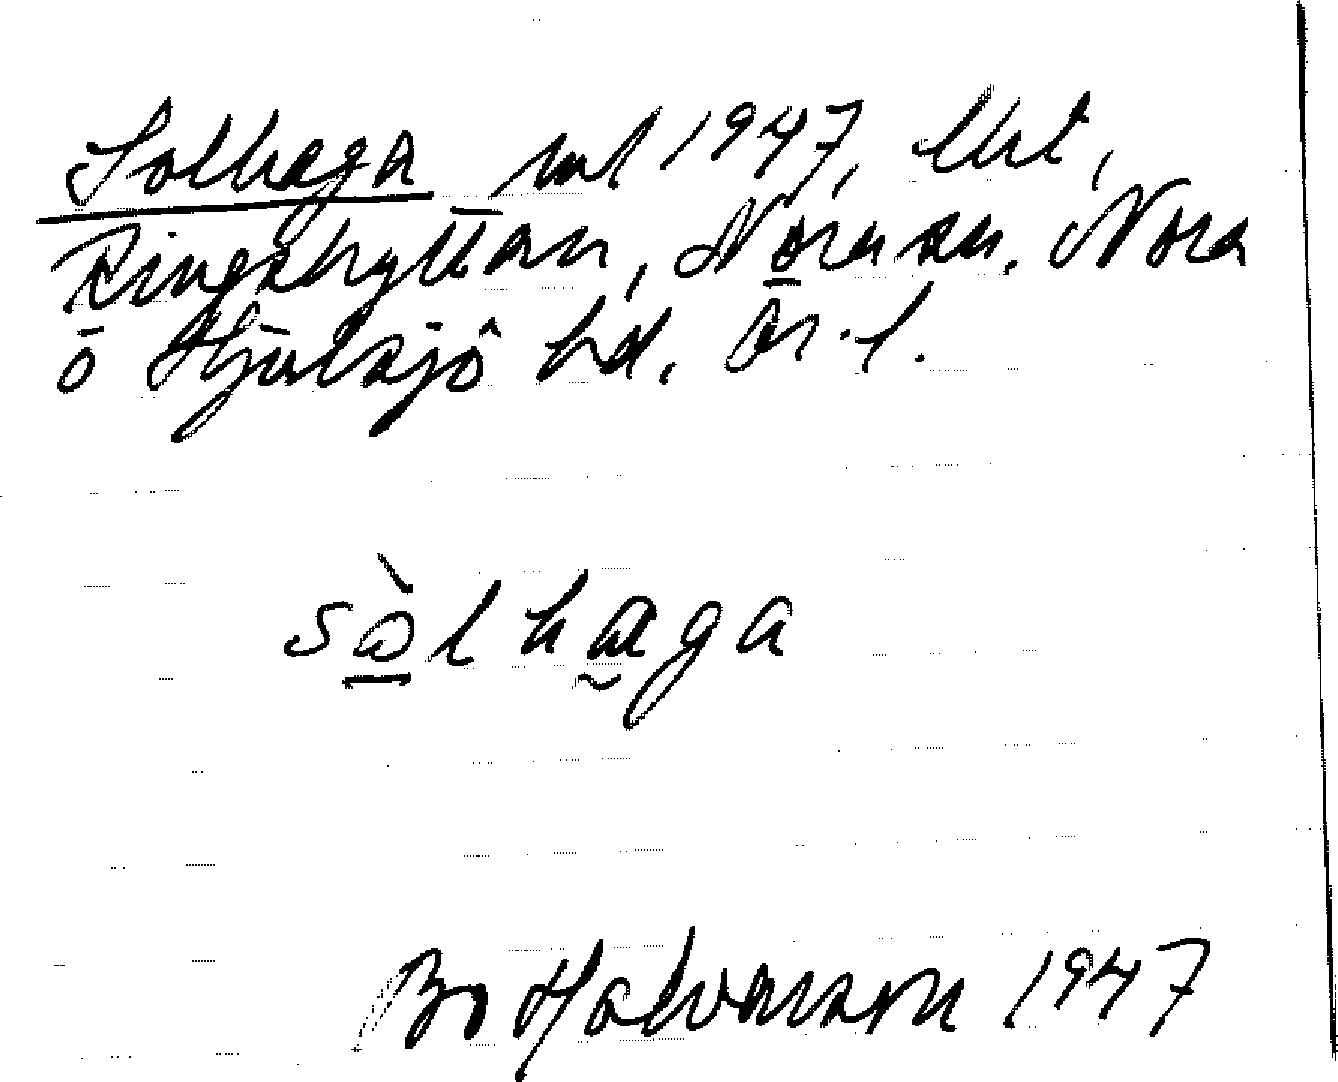 Solhaga enl 1947, lht,
Ringshyttan, Nora sn. Nora
o Hjulsjö hd, Ör. l.
sòlhaga
Bo Halvarson 1947